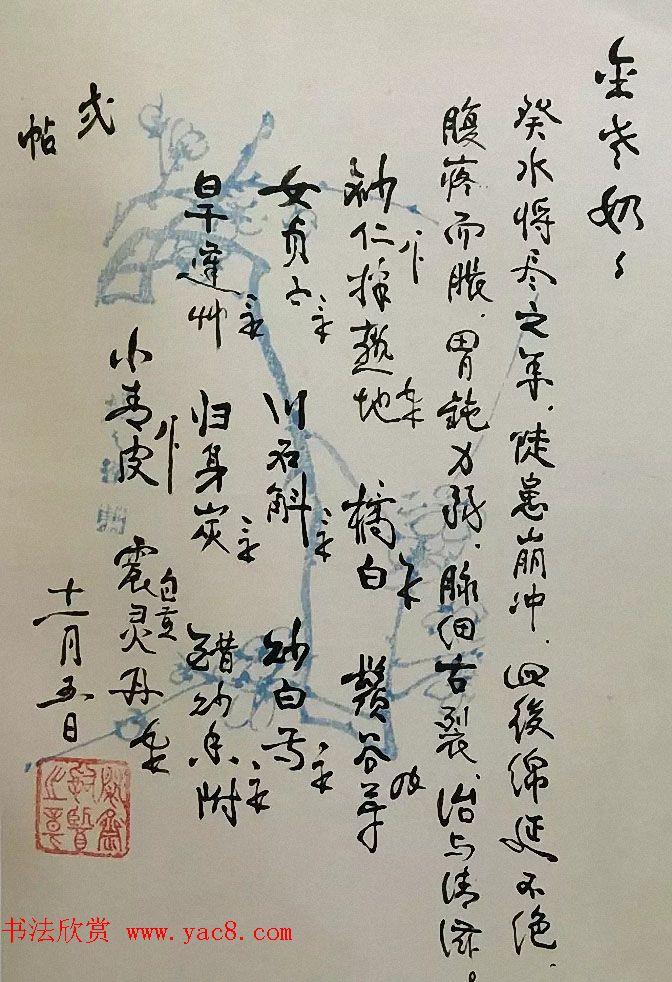 金老奶奶
癸水将尽之年，陡患崩冲，此后绵延不绝，
腹疼而胀，胃钝力弱，脉细舌裂，治与清滋。
砂仁 拌熟地 橘白 谷芽
女贞子 川石斛 炒白芍
旱莲艸 归身炭 醋炒香附
小青皮 震灵丹 包煎
弍帖
十一月五日
书法欣赏 www.yac8.com